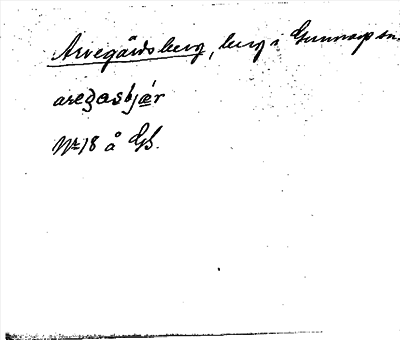 Arvegårdsberg, berg i Gunnarps sn.
aregasbjær
Nr 18 å GS.